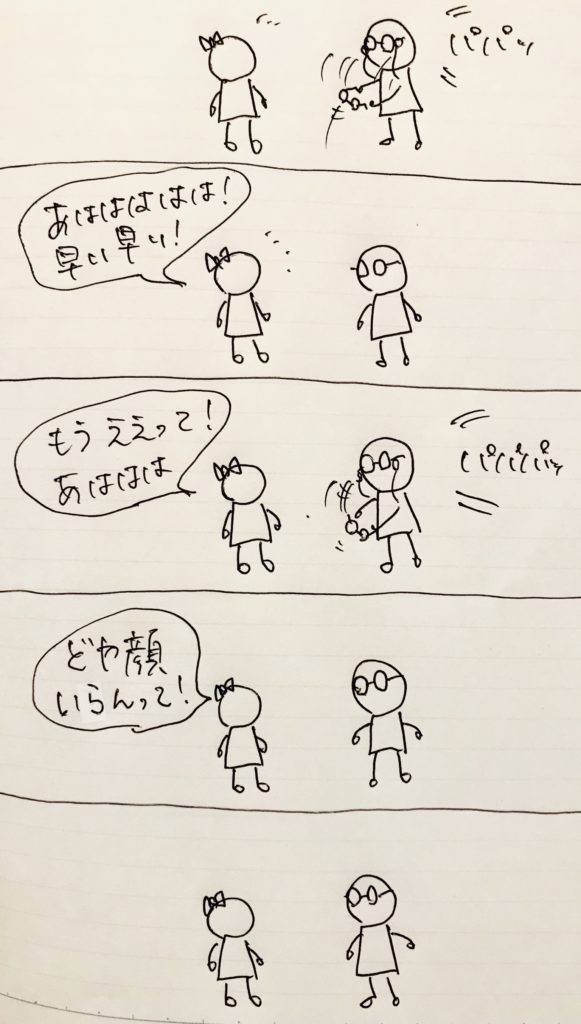 パパッ
あはははは!
早い早い!
もうええって!
あははは
パパパッ
どや顔
いらんって!